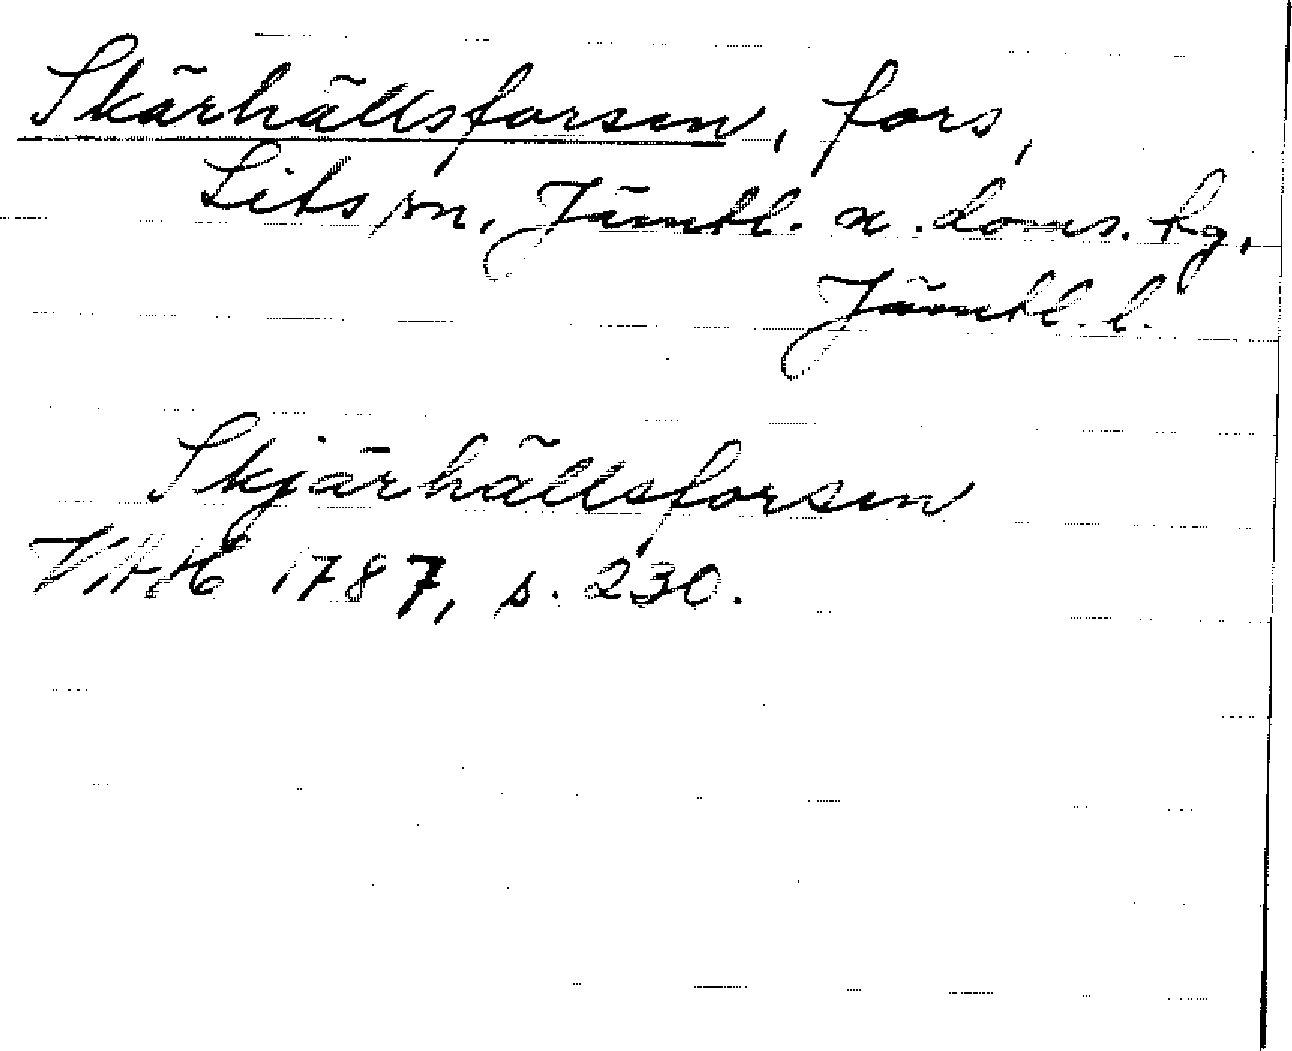 Skärhällsforsen, fors,
Lits sn, Jämtl. n. doms. tg,
Jämtl. l.
Skjärhällsforsen
VAH 1787, s. 230.